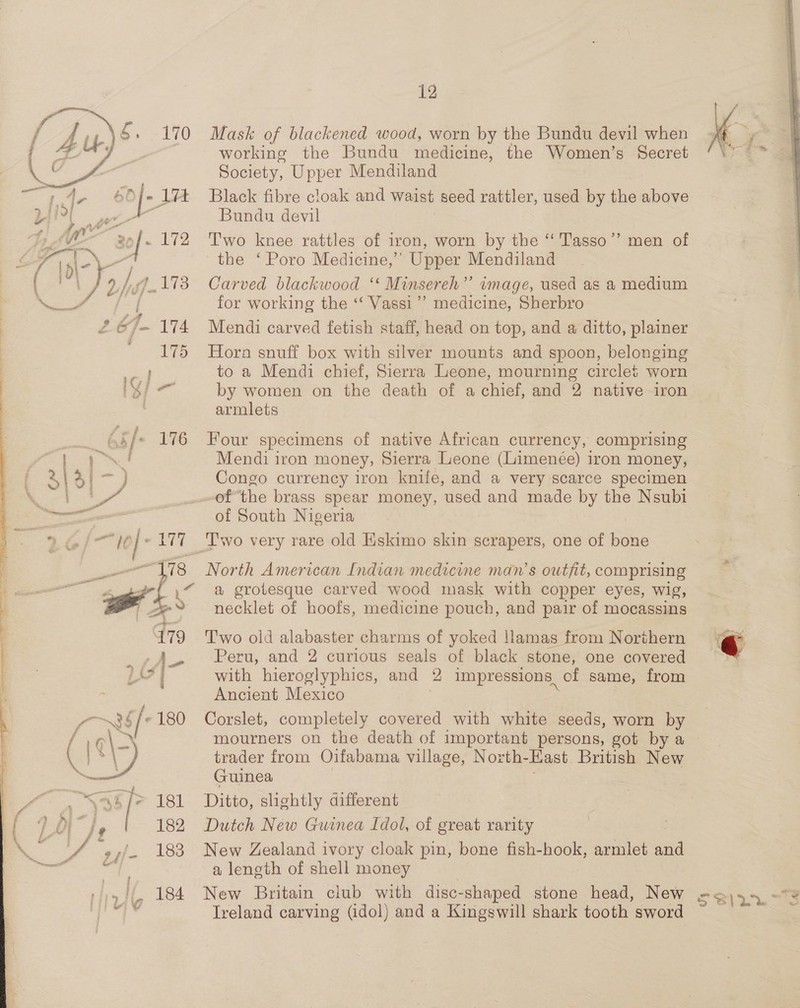 12
170 Mask of blackened wood, worn by the Bundu devil when
working the Bundu medicine, the Women's Secret
Society, Upper Mendiland
171 Black fibre cloak and waist seed rattler, used by the above
Bundu devil
172 Two knee rattles of iron, worn by the “Tasso” men of
the ‘Poro Medicine,’ Upper Mendiland
173 Carved blackwood “Minsereh” image, used as a medium
for working the “Vassi” medicine, Sherbro
174 Mendi carved fetish staff, head on top, and a ditto, plainer
175 Horn snuff box with silver mounts and spoon, belonging
to a Mendi chief, Sierra Leone, mourning circlet worn
by women on the death of a chief, and 2 native iron
armlets
176 Four specimens of native African currency, comprising
Mendi iron money, Sierra Leone (Limenée) iron money,
Congo currency iron knife, and a very scarce specimen
of the brass spear money, used and made by the Nsubi
of South Nigeria
177 Two very rare old Eskimo skin scrapers, one of bone
178 North American Indian medicine man's outfit, comprising
a grotesque carved wood mask with copper eyes, wig,
necklet of hoofs, medicine pouch, and pair of mocassins
179 Two old alabaster charms of yoked llamas from Northern
Peru, and 2 curious seals of black stone, one covered
with hieroglyphics, and 2 impressions of same, from
Ancient Mexico
180 Corslet, completely covered with white seeds, worn by
mourners on the death of important persons, got by a
trader from Oifabama village, North-East British New
Guinea
181 Ditto, slightly different
182 Dutch New Guinea Idol, of great rarity
183 New Zealand ivory cloak pin, bone fish-hook, armlet and
a length of shell money
184 New Britain club with disc-shaped stone head, New
Ireland carving (idol) and a Kingswill shark tooth sword